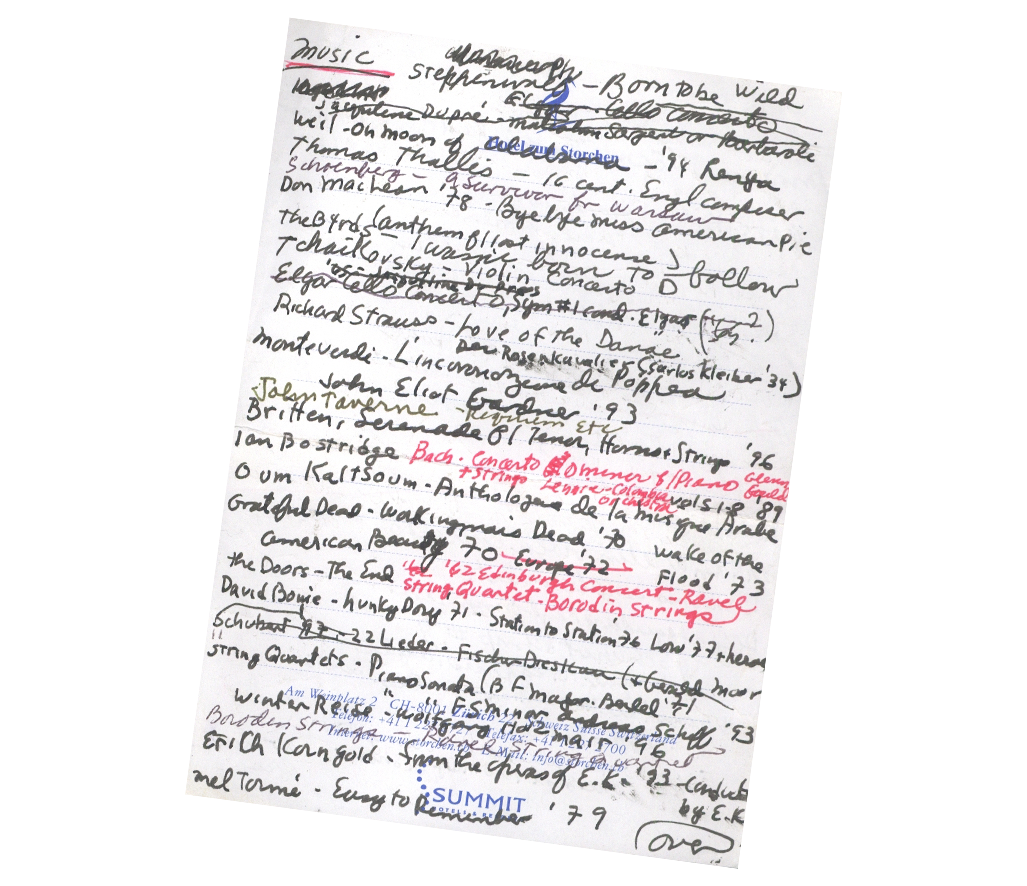 music
Steppenwolf - Born to be Wild
Elgar - Cello Concerto
Jaqueline Dupré - Malcolm Sargent or Barbarolli
Hotel zum Storchen
Weil - On moon of Alabama - '94
Thomas Thallis - 16 cent. Engl composer
Schoenberg - a Survivor for Warsaw
Don MacLean '78 - Bye bye miss american Pie
(anthem of lost innocense)
The Byrds - I wasn't born to follow
Tchaikovsky - Violin Concerto D
Elgar Cello Concerto, Sym #1 cond. Elgar
Richard Strauss - Love of the Danae
Der Rosenkavalier (Carlos Kleiber '34)
Monteverdi - L'incoronozione de Poppea
John Eliot Gardner '93
John Taverne - Requiem etc
Britten, Serenade f/ Tenor, Horns + Strings '96
Ian Bostridge
Bach - Concerto D minor f/ Piano Glenn Gould
+ Strings Lennie - Colombia Orchestra
Oum Kaltsoum - Anthologie de la musique Arabe vols 1-8 '89
Grateful Dead - Workingmans Dead '70 wake of the
American Beauty 70 Europe '72 Flood '73
the Doors - The End
'62 Edinburgh Concert - Ravel
String Quartet - Borodin Strings
David Bowie - hunky Dory '71 - Station to Station '76 Low '77 + heros
Schubert '97 - 22 Lieder - Fischer Dieskau (+ Gerald Moor
String Quartets - Piano Sonata (B F major. Brendel '71
" " E S minor Andreas Schiff '93
Winter Reise - Wolfgang Holzmair '96
Am Weinplatz 2 CH-8001 Zürich Schweiz Suisse Switzerland
Borodin Strings - String Quartet
Internet: www.storchen.ch E-Mail: info@storchen.ch
Erich Korngold - from the operas of E.K. '93 - conducted
by E.K
mel Tormé - Easy to Remember '79
SUMMIT
over